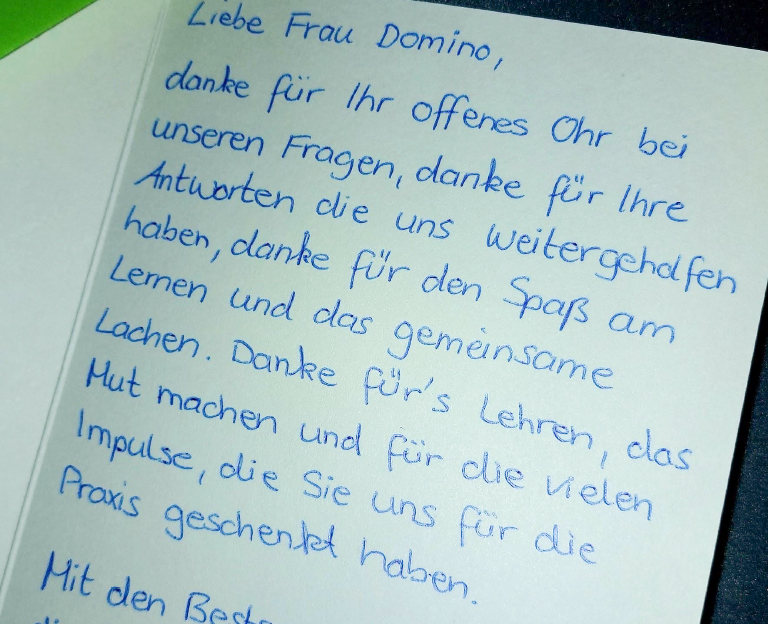 Liebe Frau Domino,
danke für Ihr offenes Ohr bei
unseren Fragen, danke für Ihre
Antworten die uns weitergeholfen
haben, danke für den Spaß am
Lernen und das gemeinsame
Lachen. Danke für's Lehren, das
Mut machen und für die vielen
Impulse, die Sie uns für die
Praxis geschenkt haben.
Mit den